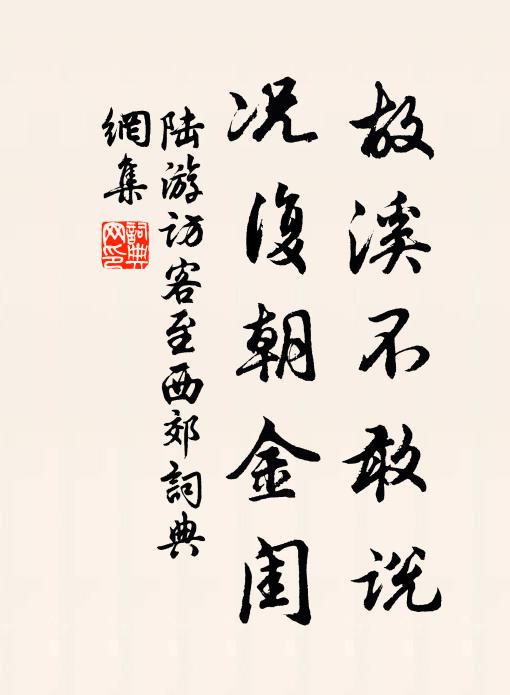 故溪不敢说
况復朝金闺
陆游访客至西郊詞典
網集
詞典
网印